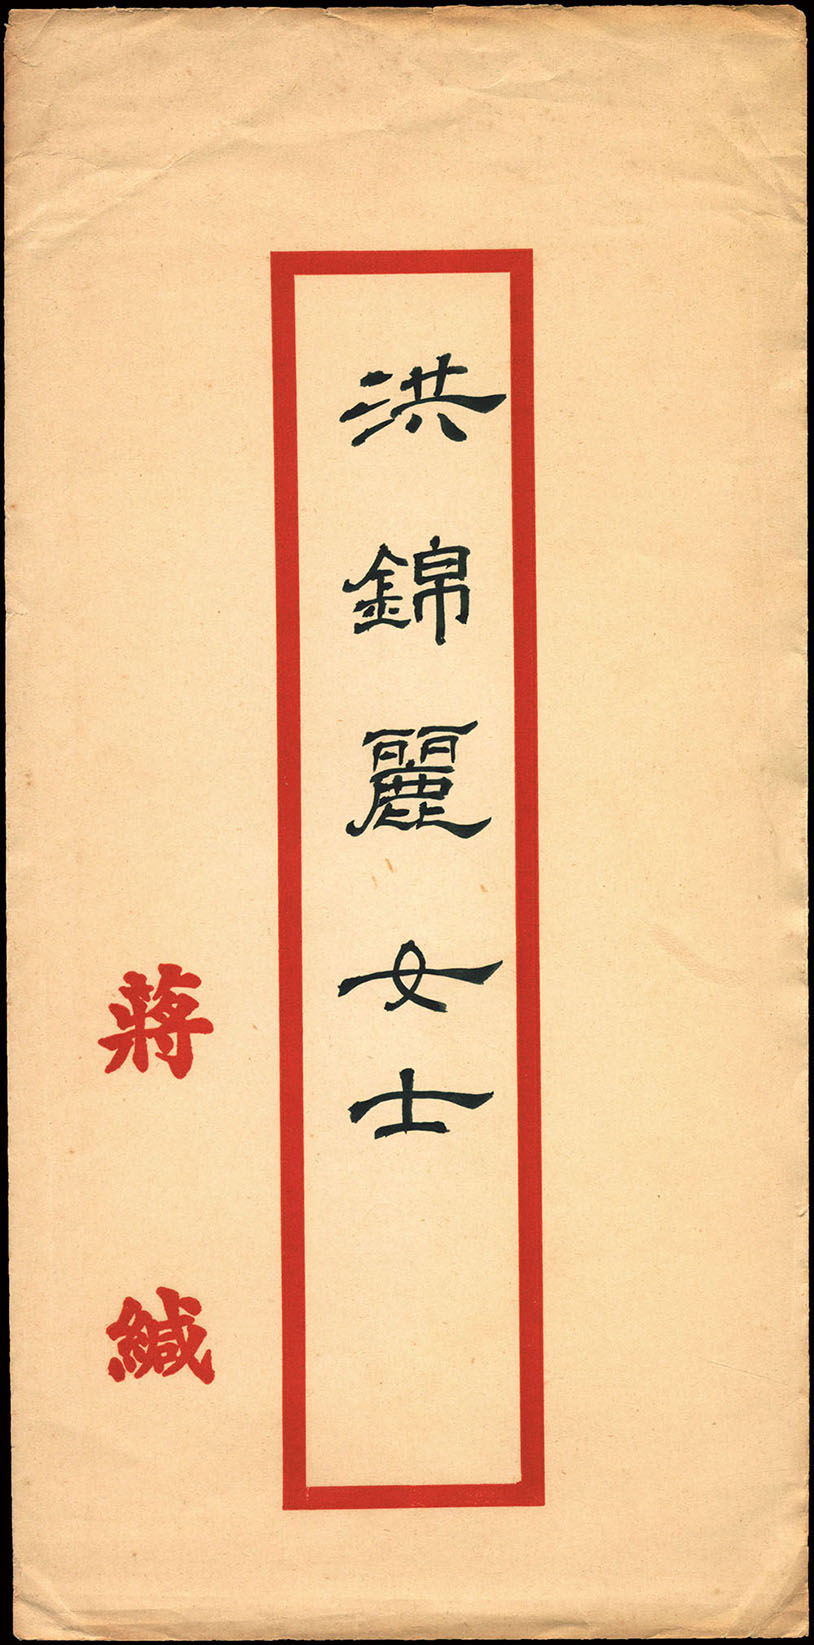 洪錦麗女士
蔣緘